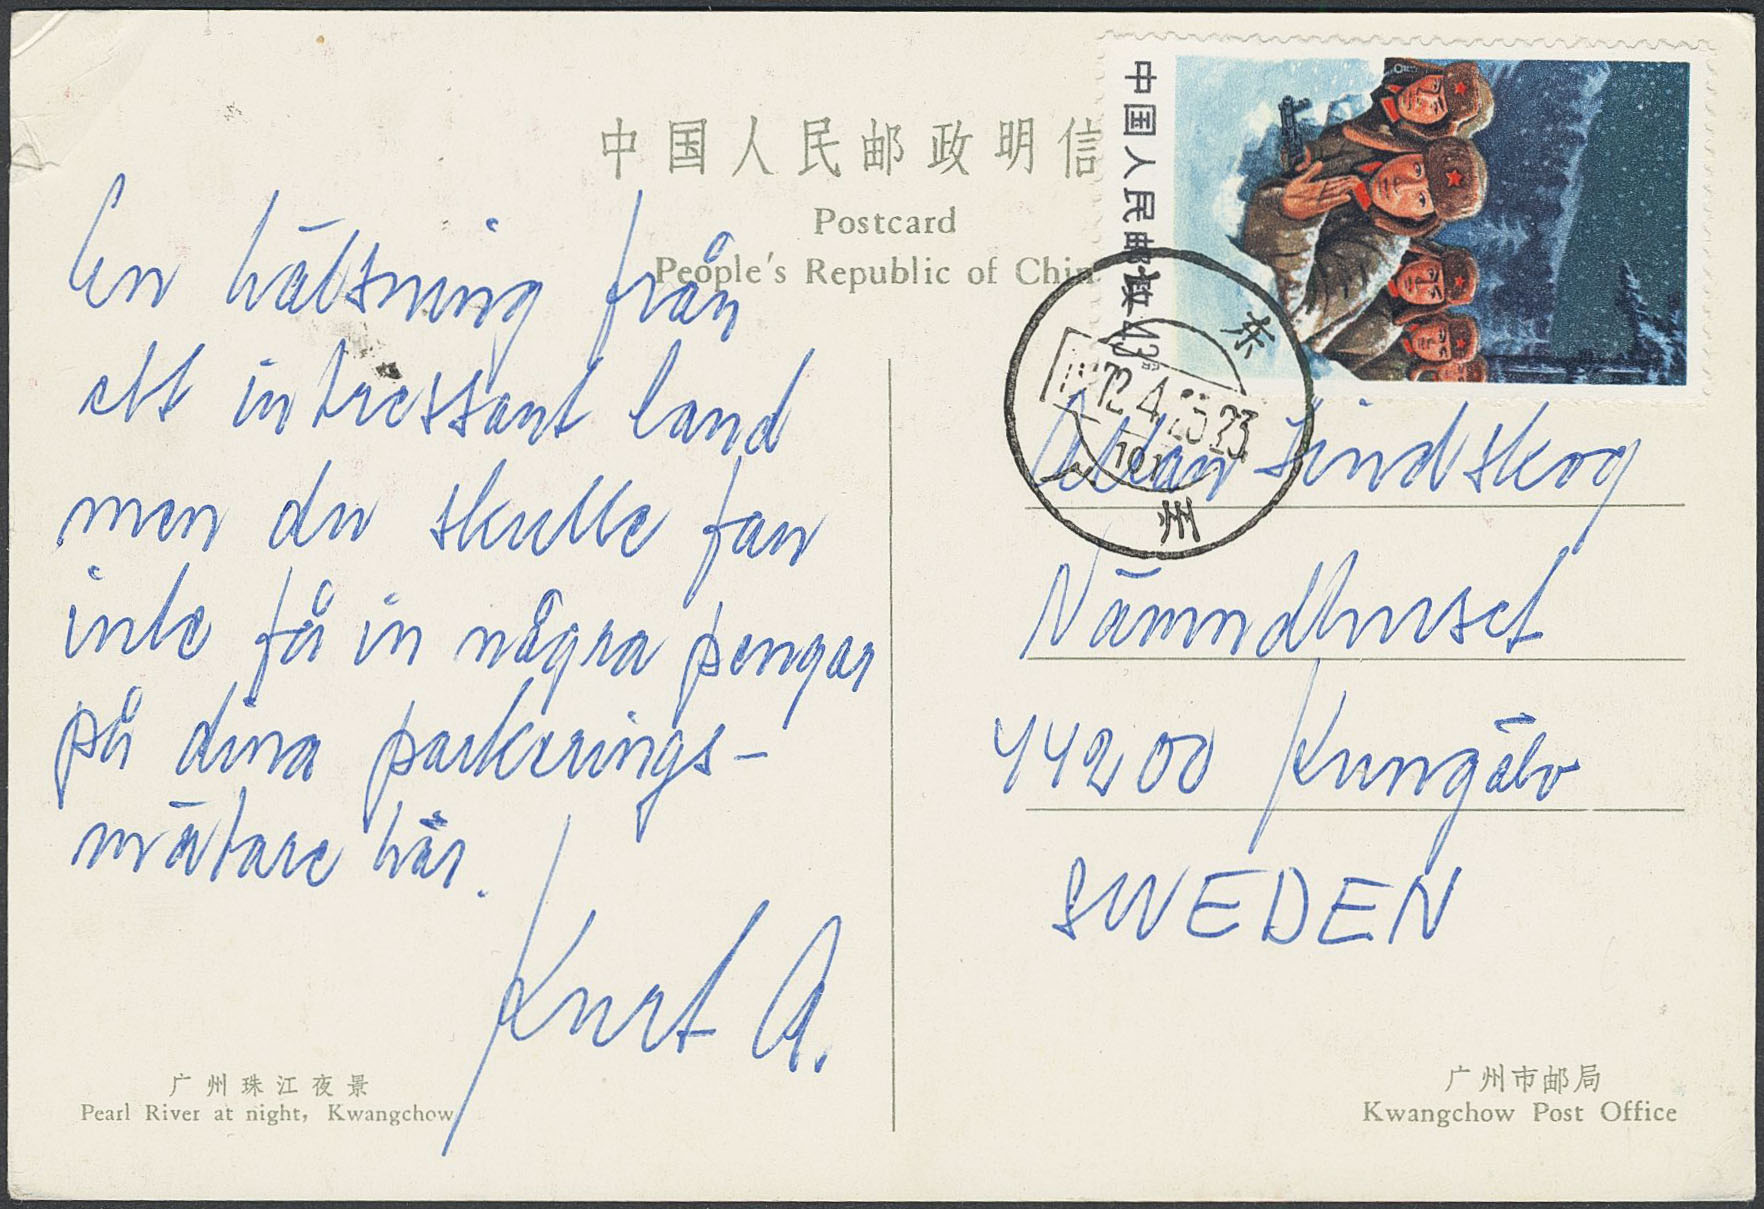 中国人民邮政明信
Postcard
People's Republic of Chin
中国人民邮政
东
72.4.25.23
州
En hälsning från
ett intressant land
men du skulle fan
inte få in några pengar
på dina parkerings-
mätare här.
Kurt A.
Allan Lindskog
Nämndhuset
44200 Kungälv
SWEDEN
广州珠江夜景
Pearl River at night, Kwangchow
广州市邮局
Kwangchow Post Office